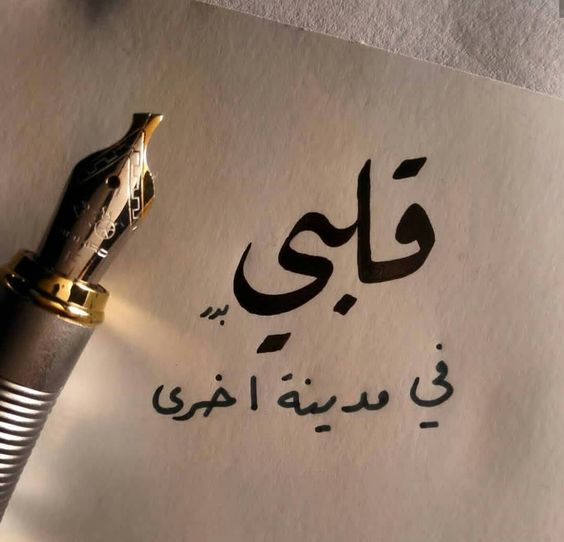 قلبي
بدر
في مدينة اخرى